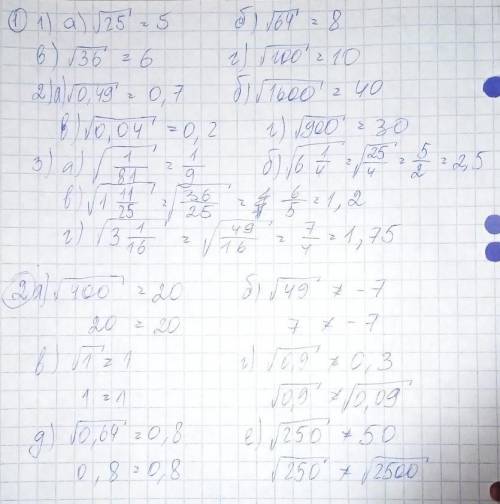 ① 1) а) √25 = 5 б) √64 = 8
в) √36 = 6 г) √100 = 10
2) а) √0,49 = 0,7 б) √1600 = 40
в) √0,04 = 0,2 г) √900 = 30
3) а) √1/81 = 1/9 б) √6 1/4 = √25/4 = 5/2 = 2,5
в) √1 11/25 = √36/25 = 6/5 = 1,2
г) √3 1/16 = √49/16 = 7/4 = 1,75
② а) √400 = 20 б) √49 ≠ -7
20 = 20 7 ≠ -7
в) √1 = 1 г) √0,9 ≠ 0,3
1 = 1 √0,9 ≠ √0,09
д) √0,64 = 0,8 е) √250 ≠ 50
0,8 = 0,8 √250 ≠ √2500